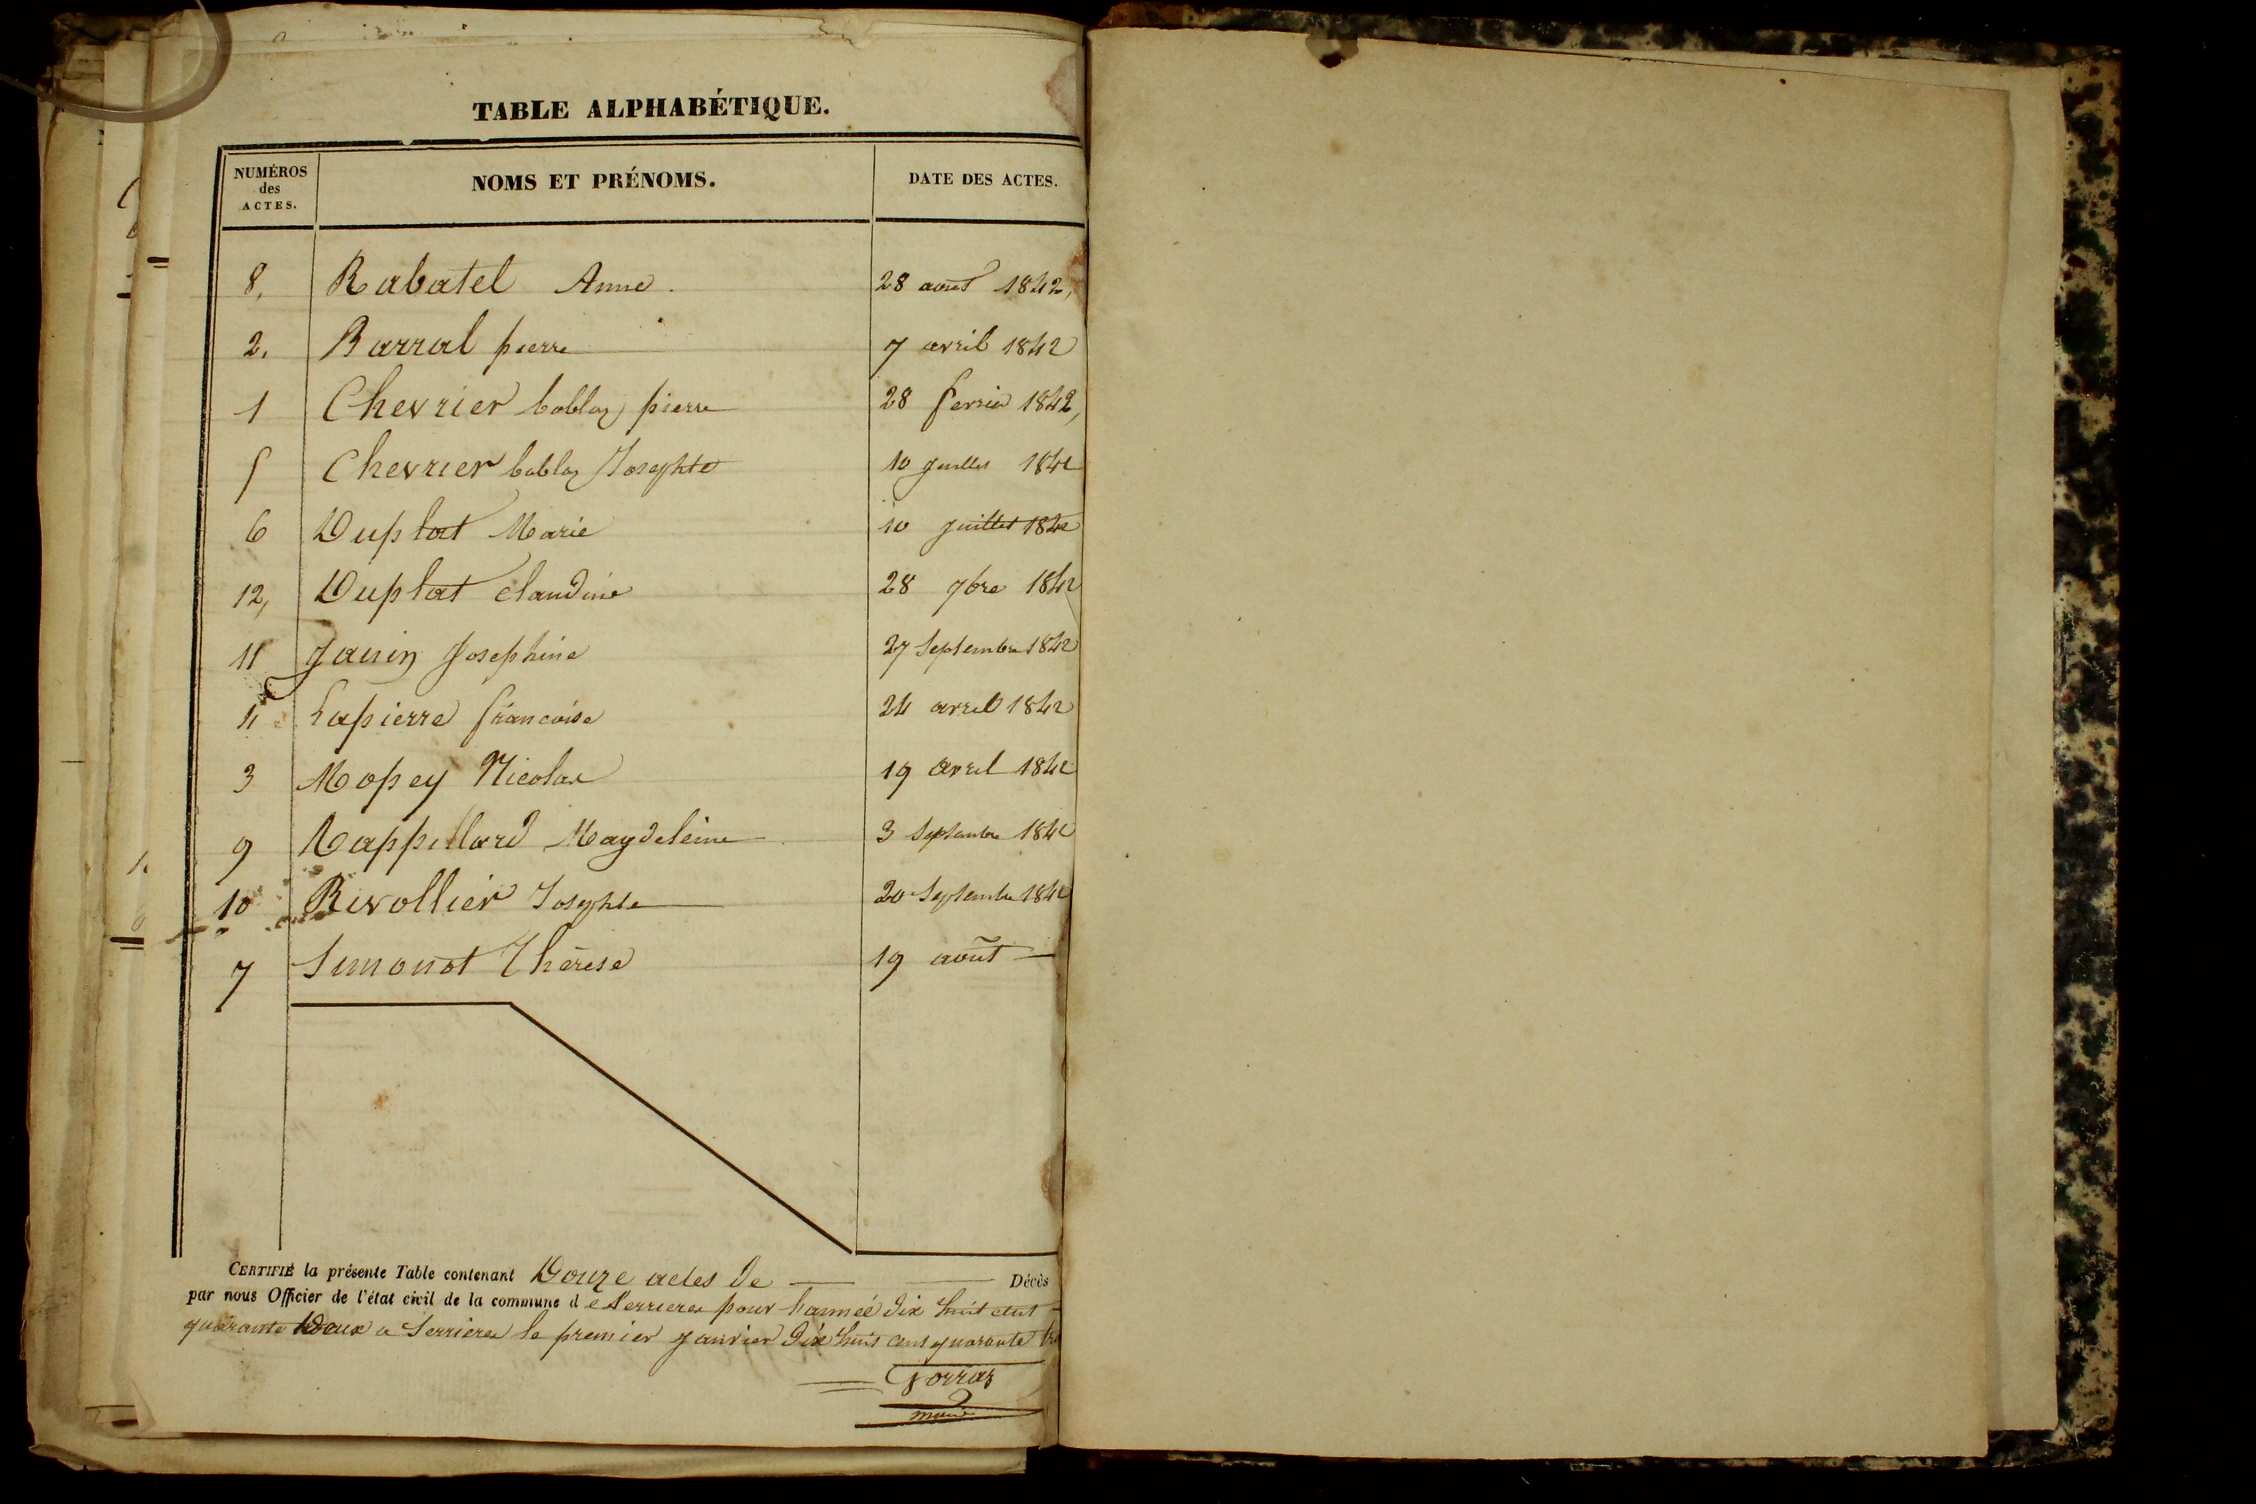 TABLE ALPHABÉTIQUE.
NUMÉROS des ACTES. NOMS ET PRÉNOMS. DATE DES ACTES.
8, Rabatel Anne. 28 août 1842,
2, Barral pierre 7 avril 1842
1 Chevrier pierre 28 fevrier 1842,
5 Chevrier Josephte 10 juillet 1842
6 Duplat Marie 10 juillet 1842
12, Duplat Claudine 28 9bre 1842
11 Janin Josephine 27 Septembre 1842
4 Lapierre francoise 24 avril 1842
3 Mopey Nicolas 19 avril 1842
9 Rappillard Magdeleine 3 Septembre 1842
10 Rivollier Josephte 20 Septembre 1842
7 Simonot Thérèse 19 août
CERTIFIÉ la présente Table contenant Douze actes de Décès
par nous Officier de l'état civil de la commune de Serrieres pour l'année dix huit cent
quarante deux a Serrieres le premier janvier dix huit cent quarante
maire